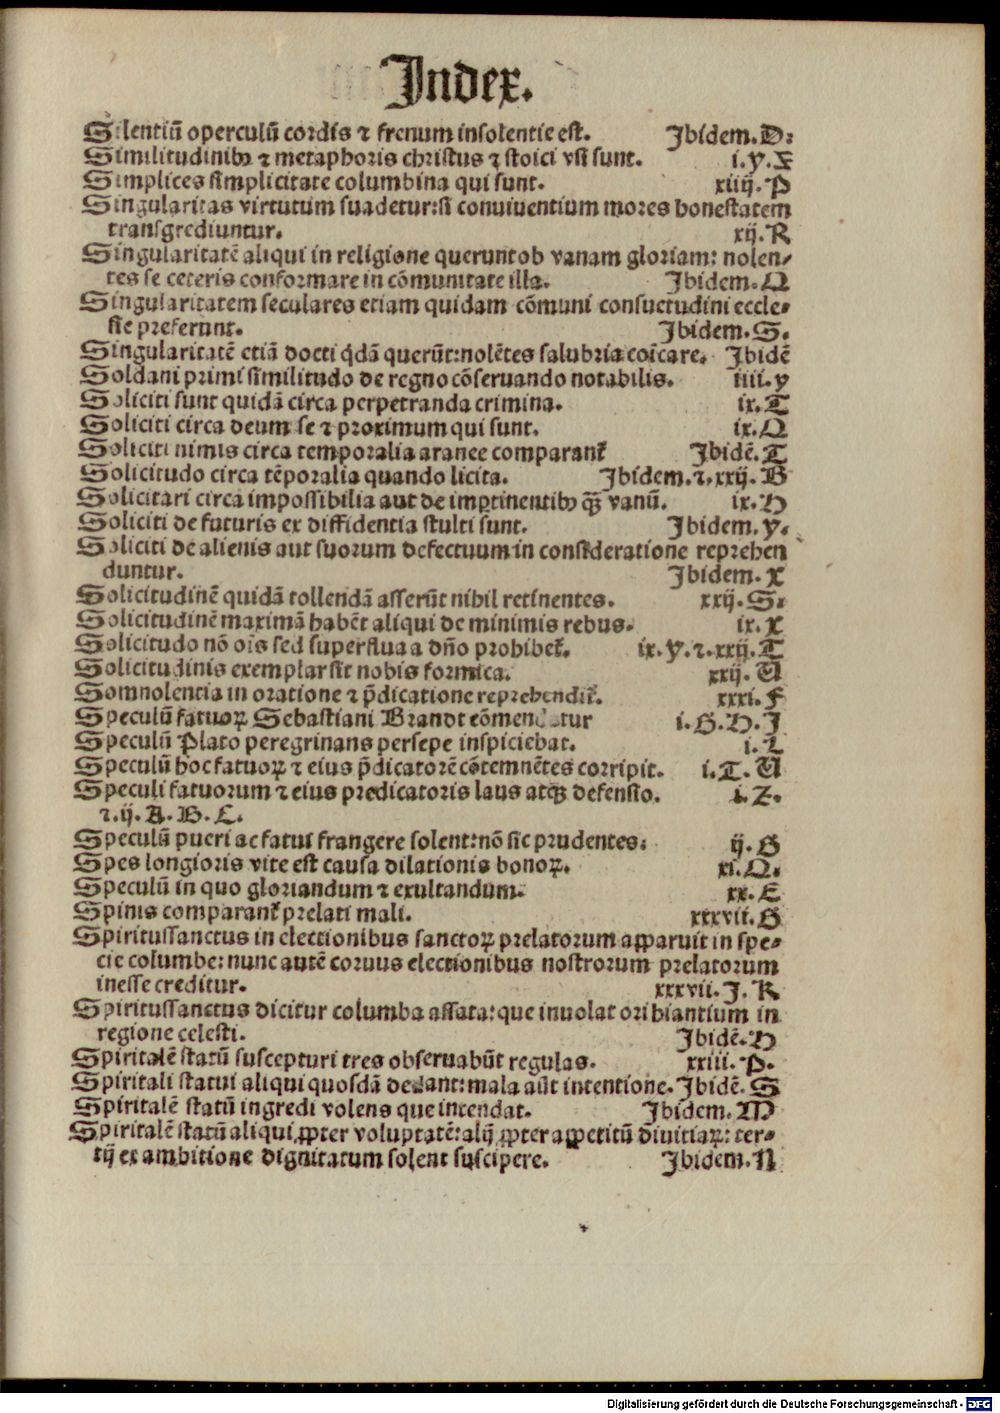 Index.
Silentiū operculū cordis ⁊ frenum insolentie est. Ibidem.D.
Similitudinibꝰ ⁊ metaphoris christus ⁊ stoici vsi sunt. i.y.Z
Simplices simplicitate columbina qui sunt. xiiij.P
Singularitas virtutum suadetur:si conuiuentium mores honestatem
transgrediuntur. xij.R
Singularitatē aliqui in religione querunt ob vanam gloriam: nolen-
tes se ceteris conformare in cōmunitate illa. Ibidem.Q
Singularitatem seculares etiam quidam cōmuni consuetudini eccle-
sie preferunt. Ibidem.S.
Singularitatē etiā docti q̇dā querūt:nolētes salubria cōicare. Ibidē
Soldani primi similitudo de regno cōseruando notabilis. iiii.y
Soliciti sunt quidā circa perpetranda crimina. ix.T
Soliciti circa deum se ⁊ proximum qui sunt. ix.Q
Soliciti nimis circa temporalia aranee comparant᷑ Ibidē.T
Solicitudo circa tēporalia quando licita. Ibidem.⁊.xxij.B
Solicitari circa impossibilia aut de imꝑtinentibꝰ qͣꝫ vanū. ix.H
Soliciti de futuris ex diffidentia stulti sunt. Ibidem.y.
Soliciti de alienis aut suorum defectuum in consideratione reprehen
duntur. Ibidem.X
Solicitudinē quidā tollendā asserūt nihil retinentes. xxij.S.
Solicitudinē maximā habēt aliqui de minimis rebus. ix.X
Solicitudo nō oīs sed superflua a dño prohibet᷑. ix.y.⁊.xxij.T
Solicitudinis exemplar sit nobis formica. xxij.U
Somnolentia in oratione ⁊ p̄dicatione reprehendit᷑. xxxi.F
Speculū fatuoꝝ Sebastiani Brandt cōmendatur i.G.H.I
Speculū Plato peregrinans persepe inspiciebat. i.L
Speculū hoc fatuoꝝ ⁊ eius p̄dicatorē cōtemnētes corripit. i.T.U
Speculi fatuorum ⁊ eius predicatoris laus atqꝫ defensio. i.Z.
⁊.ij.A.B.C.
Speculū pueri ac fatui frangere solent:nō sic prudentes. ij.G
Spes longioris vite est causa dilationis bonoꝝ. xi.Q.
Speculū in quo gloriandum ⁊ exultandum. xx.E
Spinis comparant᷑ prelati mali. xxxvii.G
Spiritussanctus in electionibus sanctoꝝ prelatorum apparuit in spe-
cie columbe:nunc autē coruus electionibus nostrorum prelatorum
inesse creditur. xxxvii.I.K
Spiritussanctus dicitur columba assata:que inuolat ori hiantium in
regione celesti. Ibidē.H
Spiritalē statū suscepturi tres obseruabūt regulas. xxiii.P.
Spiritali statui aliqui quosdā dedant:mala aūt intentione.Ibidē.S
Spiritalē statū ingredi volens que intendat. Ibidem.M
Spiritalē statū aliqui ꝓpter voluptatē:alij ꝓpter appetitū diuitiaꝝ:ter-
tij ex ambitione dignitatum solent suscipere. Ibidem.N
Digitalisierung gefördert durch die Deutsche Forschungsgemeinschaft - DFG